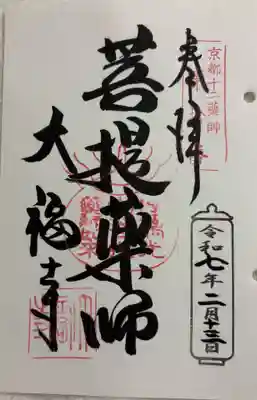 京都十二薬師
奉拝
菩提薬師
大福寺
令和七年二月十三日